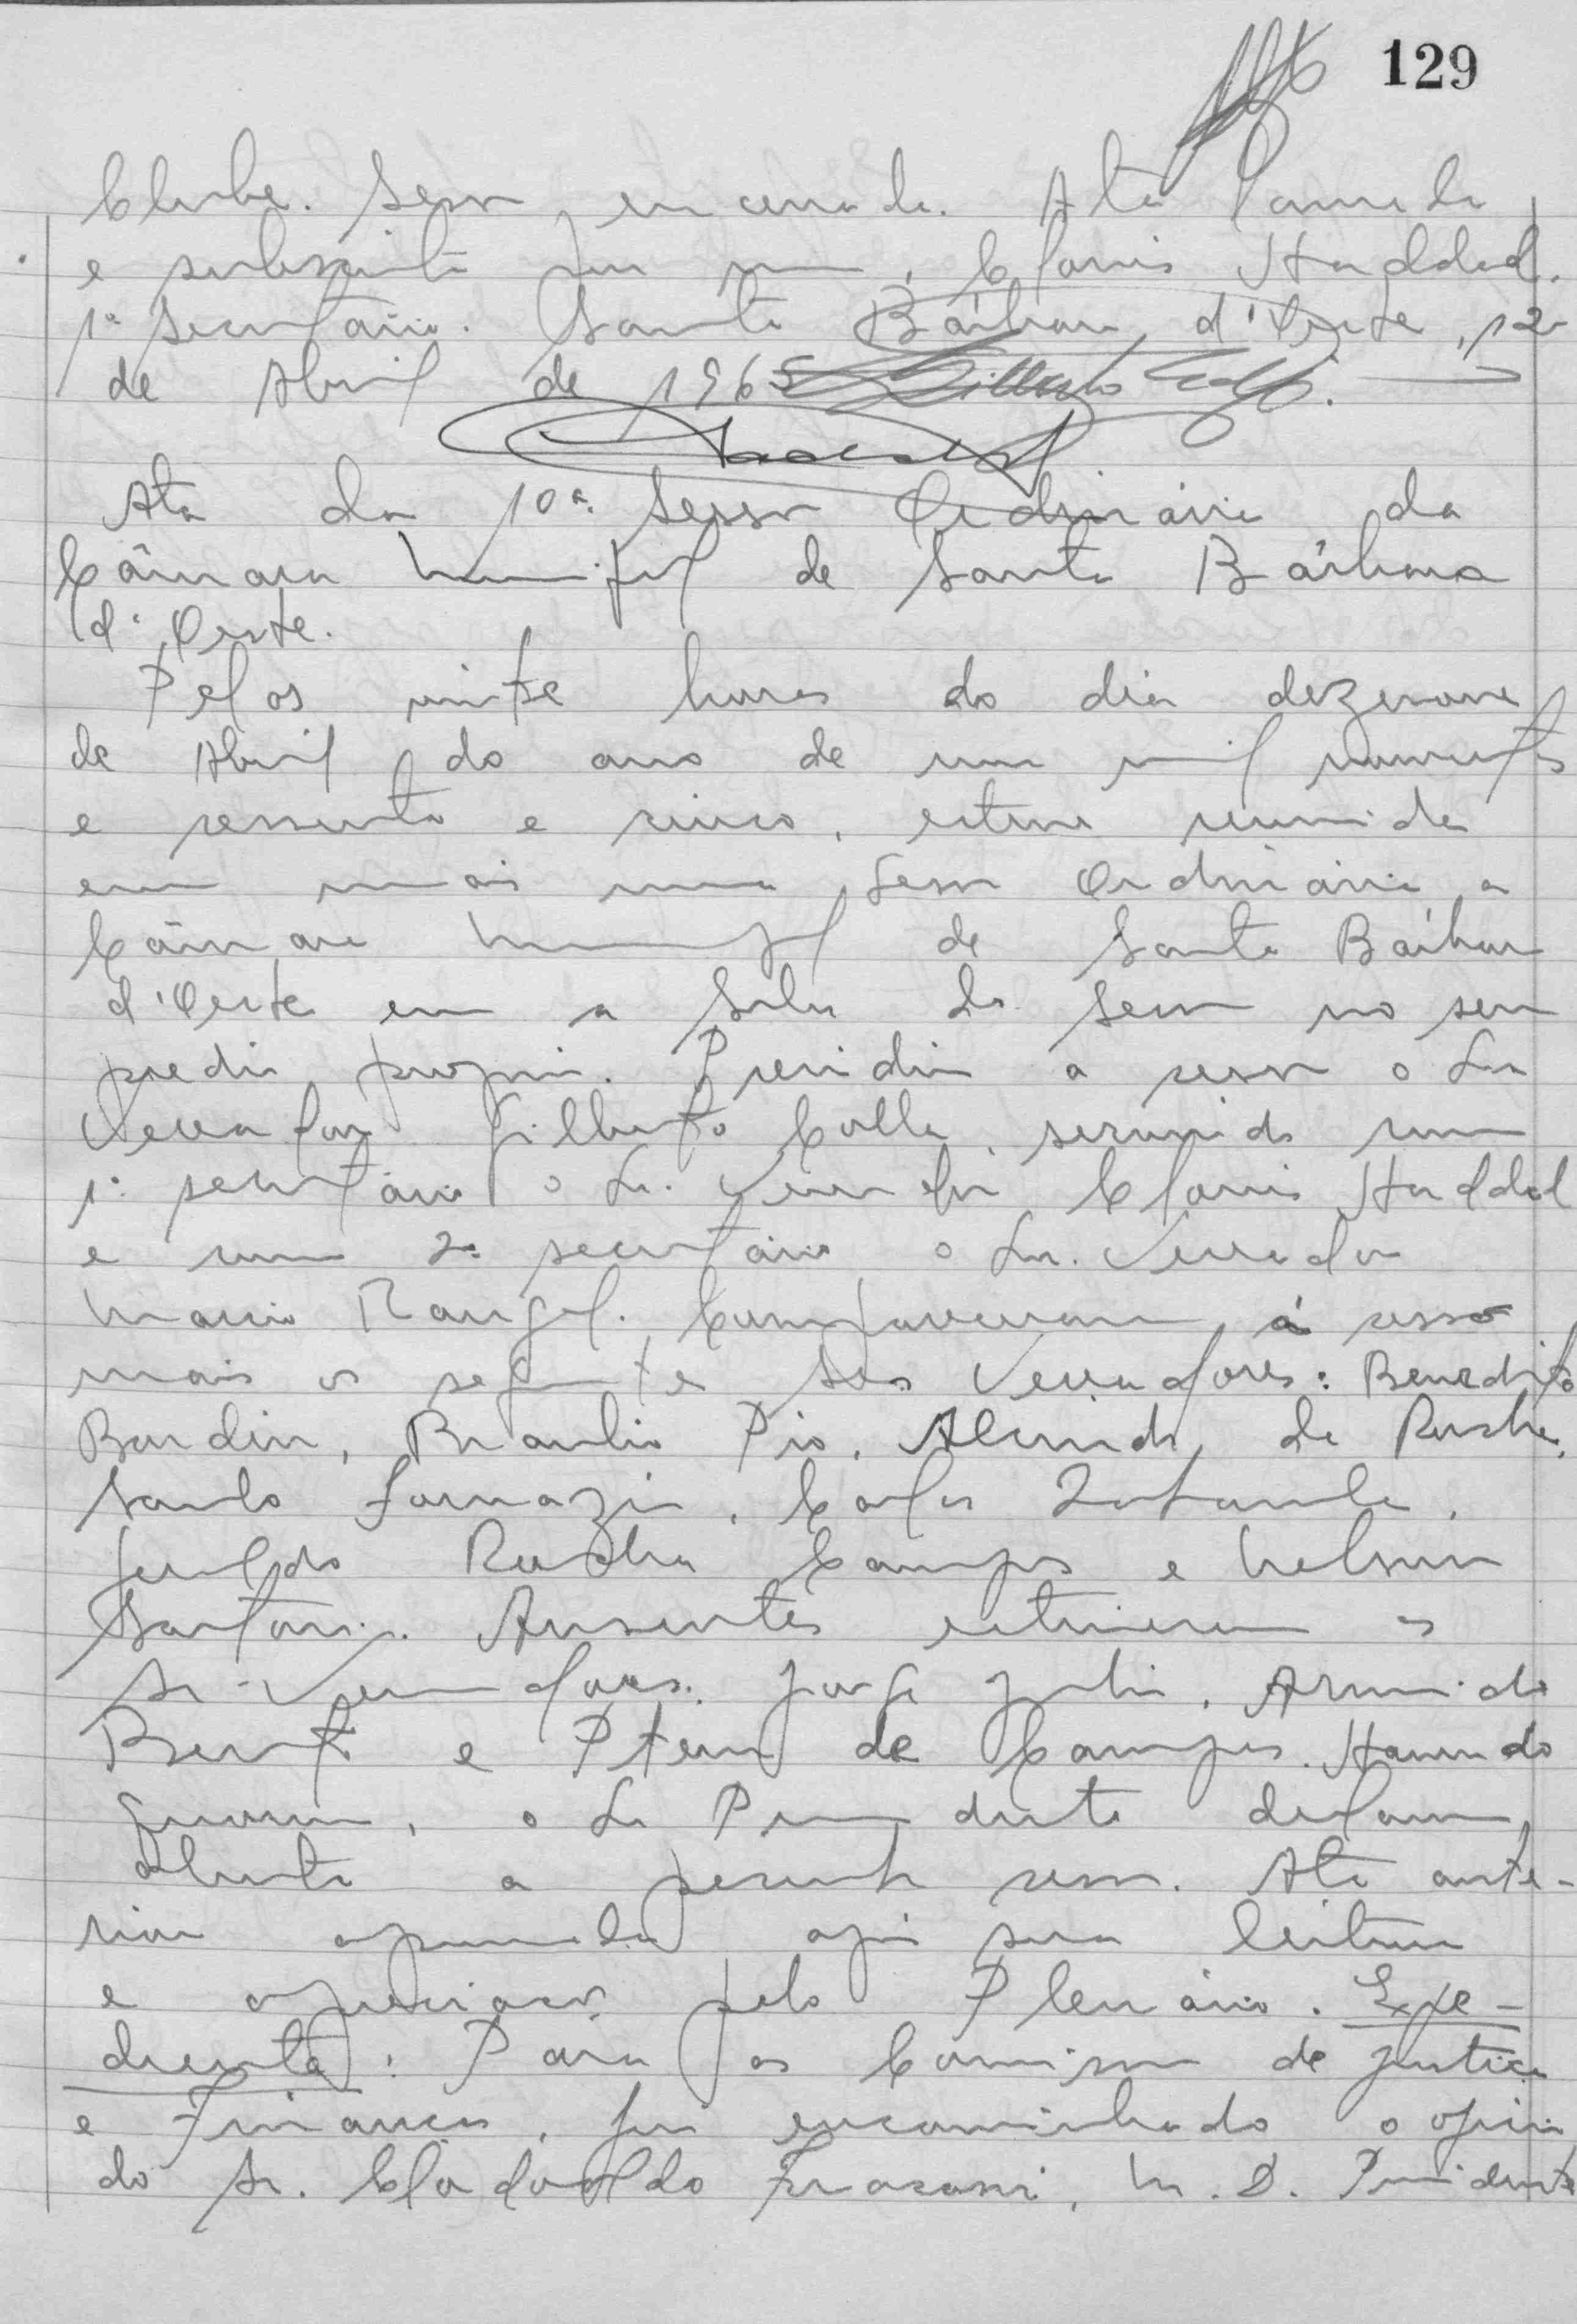 129
Clube. Sessão encerrada. Ata lavrada
e subscrita por mim, Clovis Haddad.
1º Secretário. Santa Bárbara d'Oeste, 12
de Abril de 1965
Ata da 10ª Sessão Ordinária da
Câmara Municipal de Santa Bárbara
d'Oeste.
Pelas vinte horas do dia dezenove
de Abril do ano de um mil novecentos
e sessenta e cinco, esteve reunida
em mais uma Sessão Ordinária a
Câmara Municipal de Santa Bárbara
d'Oeste em a Sala de Sessão no seu
predio proprio. Presidiu a sessão o Sr
Vereador Gilberto Colla, servindo como
1º secretário o Sr. Vereador Clovis Haddad
e como 2º secretário o Sr. Vereador
Mario Rangel. Compareceram á sessão
mais os seguintes Srs Vereadores: Benedito
Bardin, Braulio Pio, Alcindo da Rocha,
Carlos
Geraldo Rocha Campos e Nelson
Ausentes estiveram os
Srs. Vereadores: Jorge Armindo
e de Campos. Havendo
o Sr Presidente declarou
aberta a presente sessão. Ata ante-
rior aprovada após sua leitura
e apreciação pelo Plenário. Expe-
diente: Para as Comissões de Justiça
e Finanças, foi encaminhado o oficio
do Sr. Clodoaldo M. D. Presidente